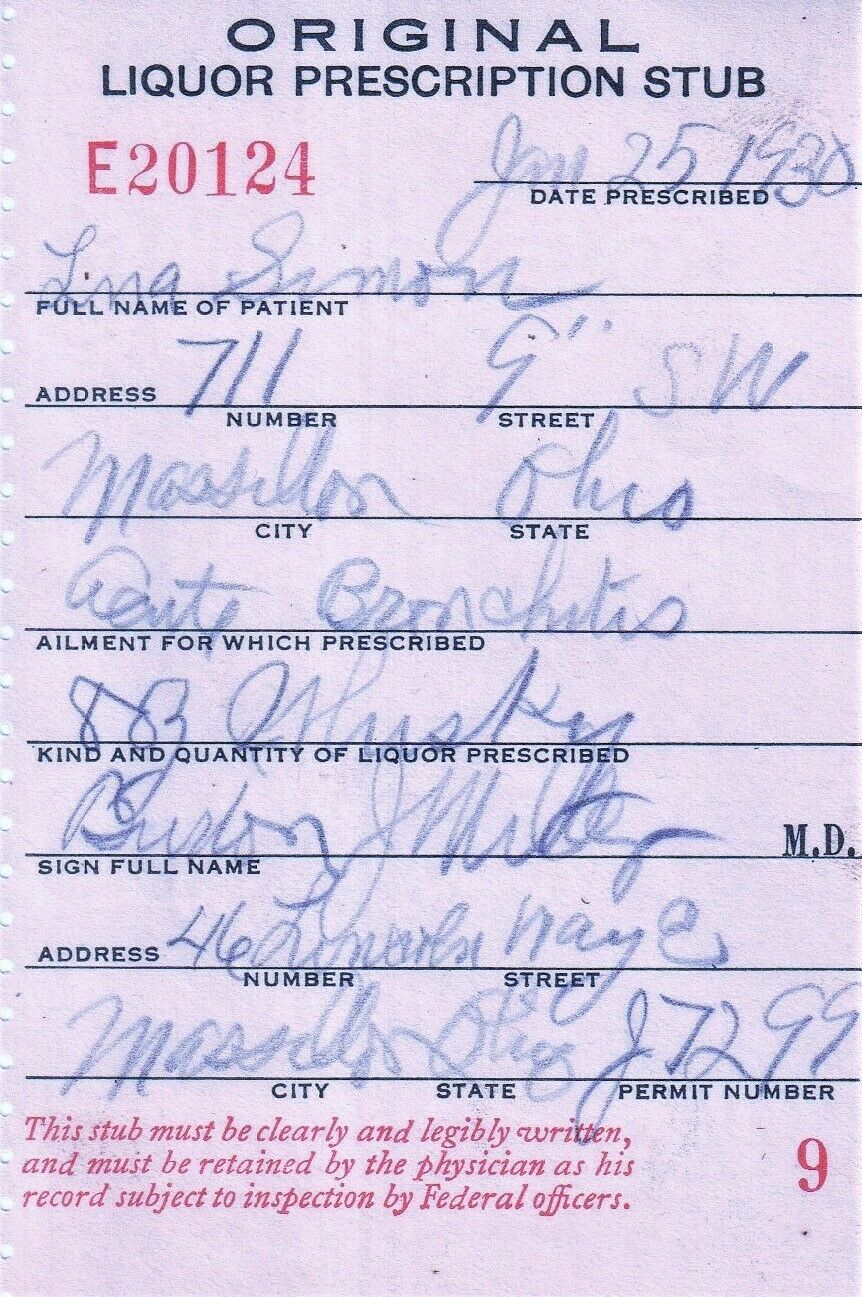 ORIGINAL
LIQUOR PRESCRIPTION STUB
E20124
Jan 25 1930
DATE PRESCRIBED
Simon
FULL NAME OF PATIENT
ADDRESS 711 9" SW
NUMBER STREET
Massillon Ohio
CITY STATE
Acute Bronchitis
AILMENT FOR WHICH PRESCRIBED
8℥ Whisky
KIND AND QUANTITY OF LIQUOR PRESCRIBED
J M.D.
SIGN FULL NAME
ADDRESS 46 Lincoln Way E
NUMBER STREET
Massillon Ohio J7299
CITY STATE PERMIT NUMBER
This stub must be clearly and legibly written,
and must be retained by the physician as his
record subject to inspection by Federal officers.
9